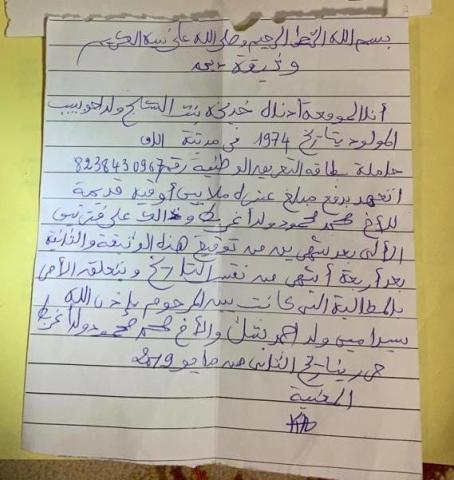 بسم الله الرحمن الرحيم وصلى الله على نبيه الكريم
وثيقة تعهد
أنا الموقعة أدناه خديجة بنت الشيخ ولد احويبيب
المولود بتاريخ 1974 في مدينة
حاملة بطاقة التعريف الوطنية رقم 8238430967
اتعهد بدفع مبلغ عشرة ملايين أوقية قديمة
للأخ محمد محمود ولد وذالك على فترتين
الألى بعد شهرين من توقيع هذه الوثيقة والثانية
بعد أربعة أشهر من نفس التاريخ ويتعلق الأمر
بالمطالبة التي كانت بين المرحوم بإذن الله
سيدامين ولد احمد شلل والأخ محمد محمود ولد
حرر بتاريخ الثاني من مايو 2019
المعنية